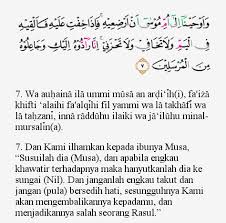 وَاَوْحَيْنَآ اِلٰٓى اُمِّ مُوْسٰٓى اَنْ اَرْضِعِيْهِۚ فَاِذَا خِفْتِ عَلَيْهِ فَاَلْقِيْهِ
فِى الْيَمِّ وَلَا تَخَافِيْ وَلَا تَحْزَنِيْۚ اِنَّا رَاۤدُّوْهُ اِلَيْكِ وَجَاعِلُوْهُ
مِنَ الْمُرْسَلِيْنَ ٧
7. Wa auḥainā ilā ummi mūsā an arḍi'īh(i), fa'iżā
khifti 'alaihi fa'alqīhi fil yammi wa lā takhāfī wa
lā taḥzanī, innā rāddūhu ilaiki wa jā'ilūhu minal-
mursalīn(a).
7. Dan Kami ilhamkan kepada ibunya Musa,
"Susuilah dia (Musa), dan apabila engkau
khawatir terhadapnya maka hanyutkanlah dia ke
sungai (Nil). Dan janganlah engkau takut dan
jangan (pula) bersedih hati, sesungguhnya Kami
akan mengembalikannya kepadamu, dan
menjadikannya salah seorang Rasul."